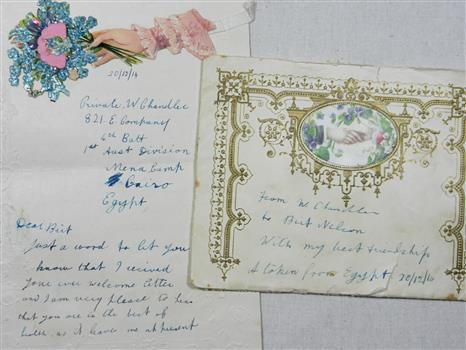 20/12/14
Private W Chandler
821 E. Company
6th Batt
1st Aust Division
Mena Camp
Cairo
Egypt
Dear Birt
Just a word to let you
know that I recived
your ever welcome letter
and I am very please to hear
that you are in the best of
as it leave me at present
From W Chandler
to Birt Nelson
With my best friendship
A token from Egypt 20/12/14